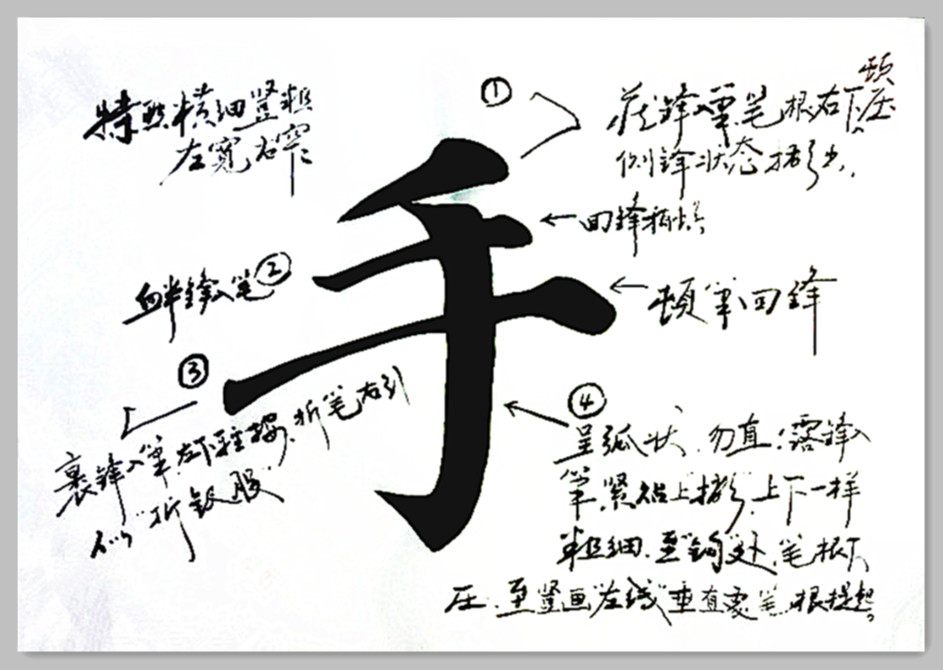 特点横细竖粗
左宽右窄
①
藏锋入笔笔根右下顿压
侧锋状态挫出
手
回锋稍按
②
锋入笔
顿笔回锋
③
裹锋入笔左下轻按折笔右引
似"折钗股"
④
呈弧状、勿直!露锋入
笔紧贴上挫，上下一样
粗细、至"钩"处、笔根下
压、至竖画"左线"垂直处笔根提起。